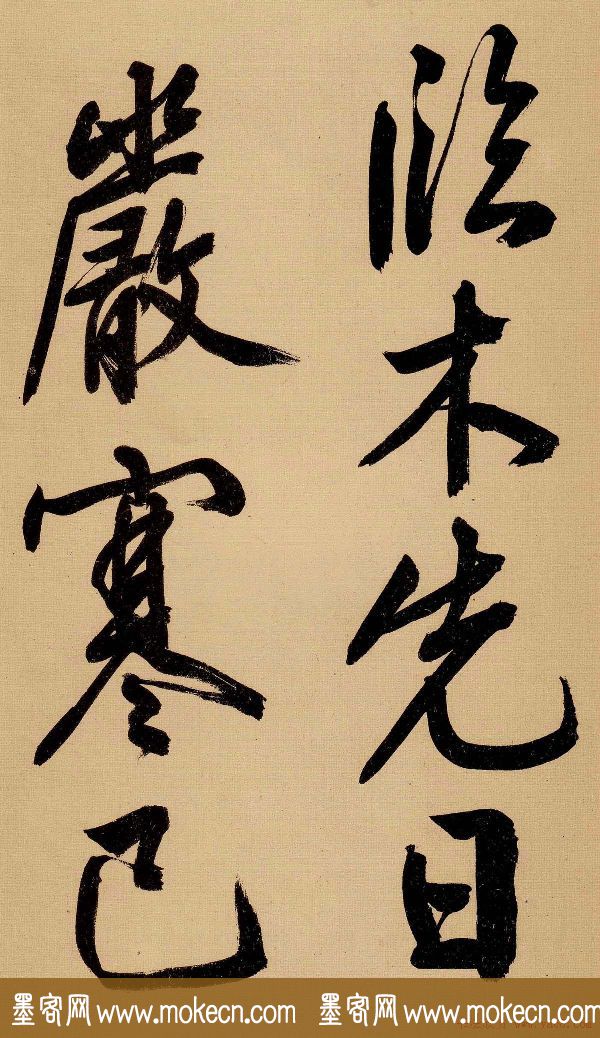 木先日
嚴寒已
墨客网www.mokecn.com 墨客网www.mokecn.com